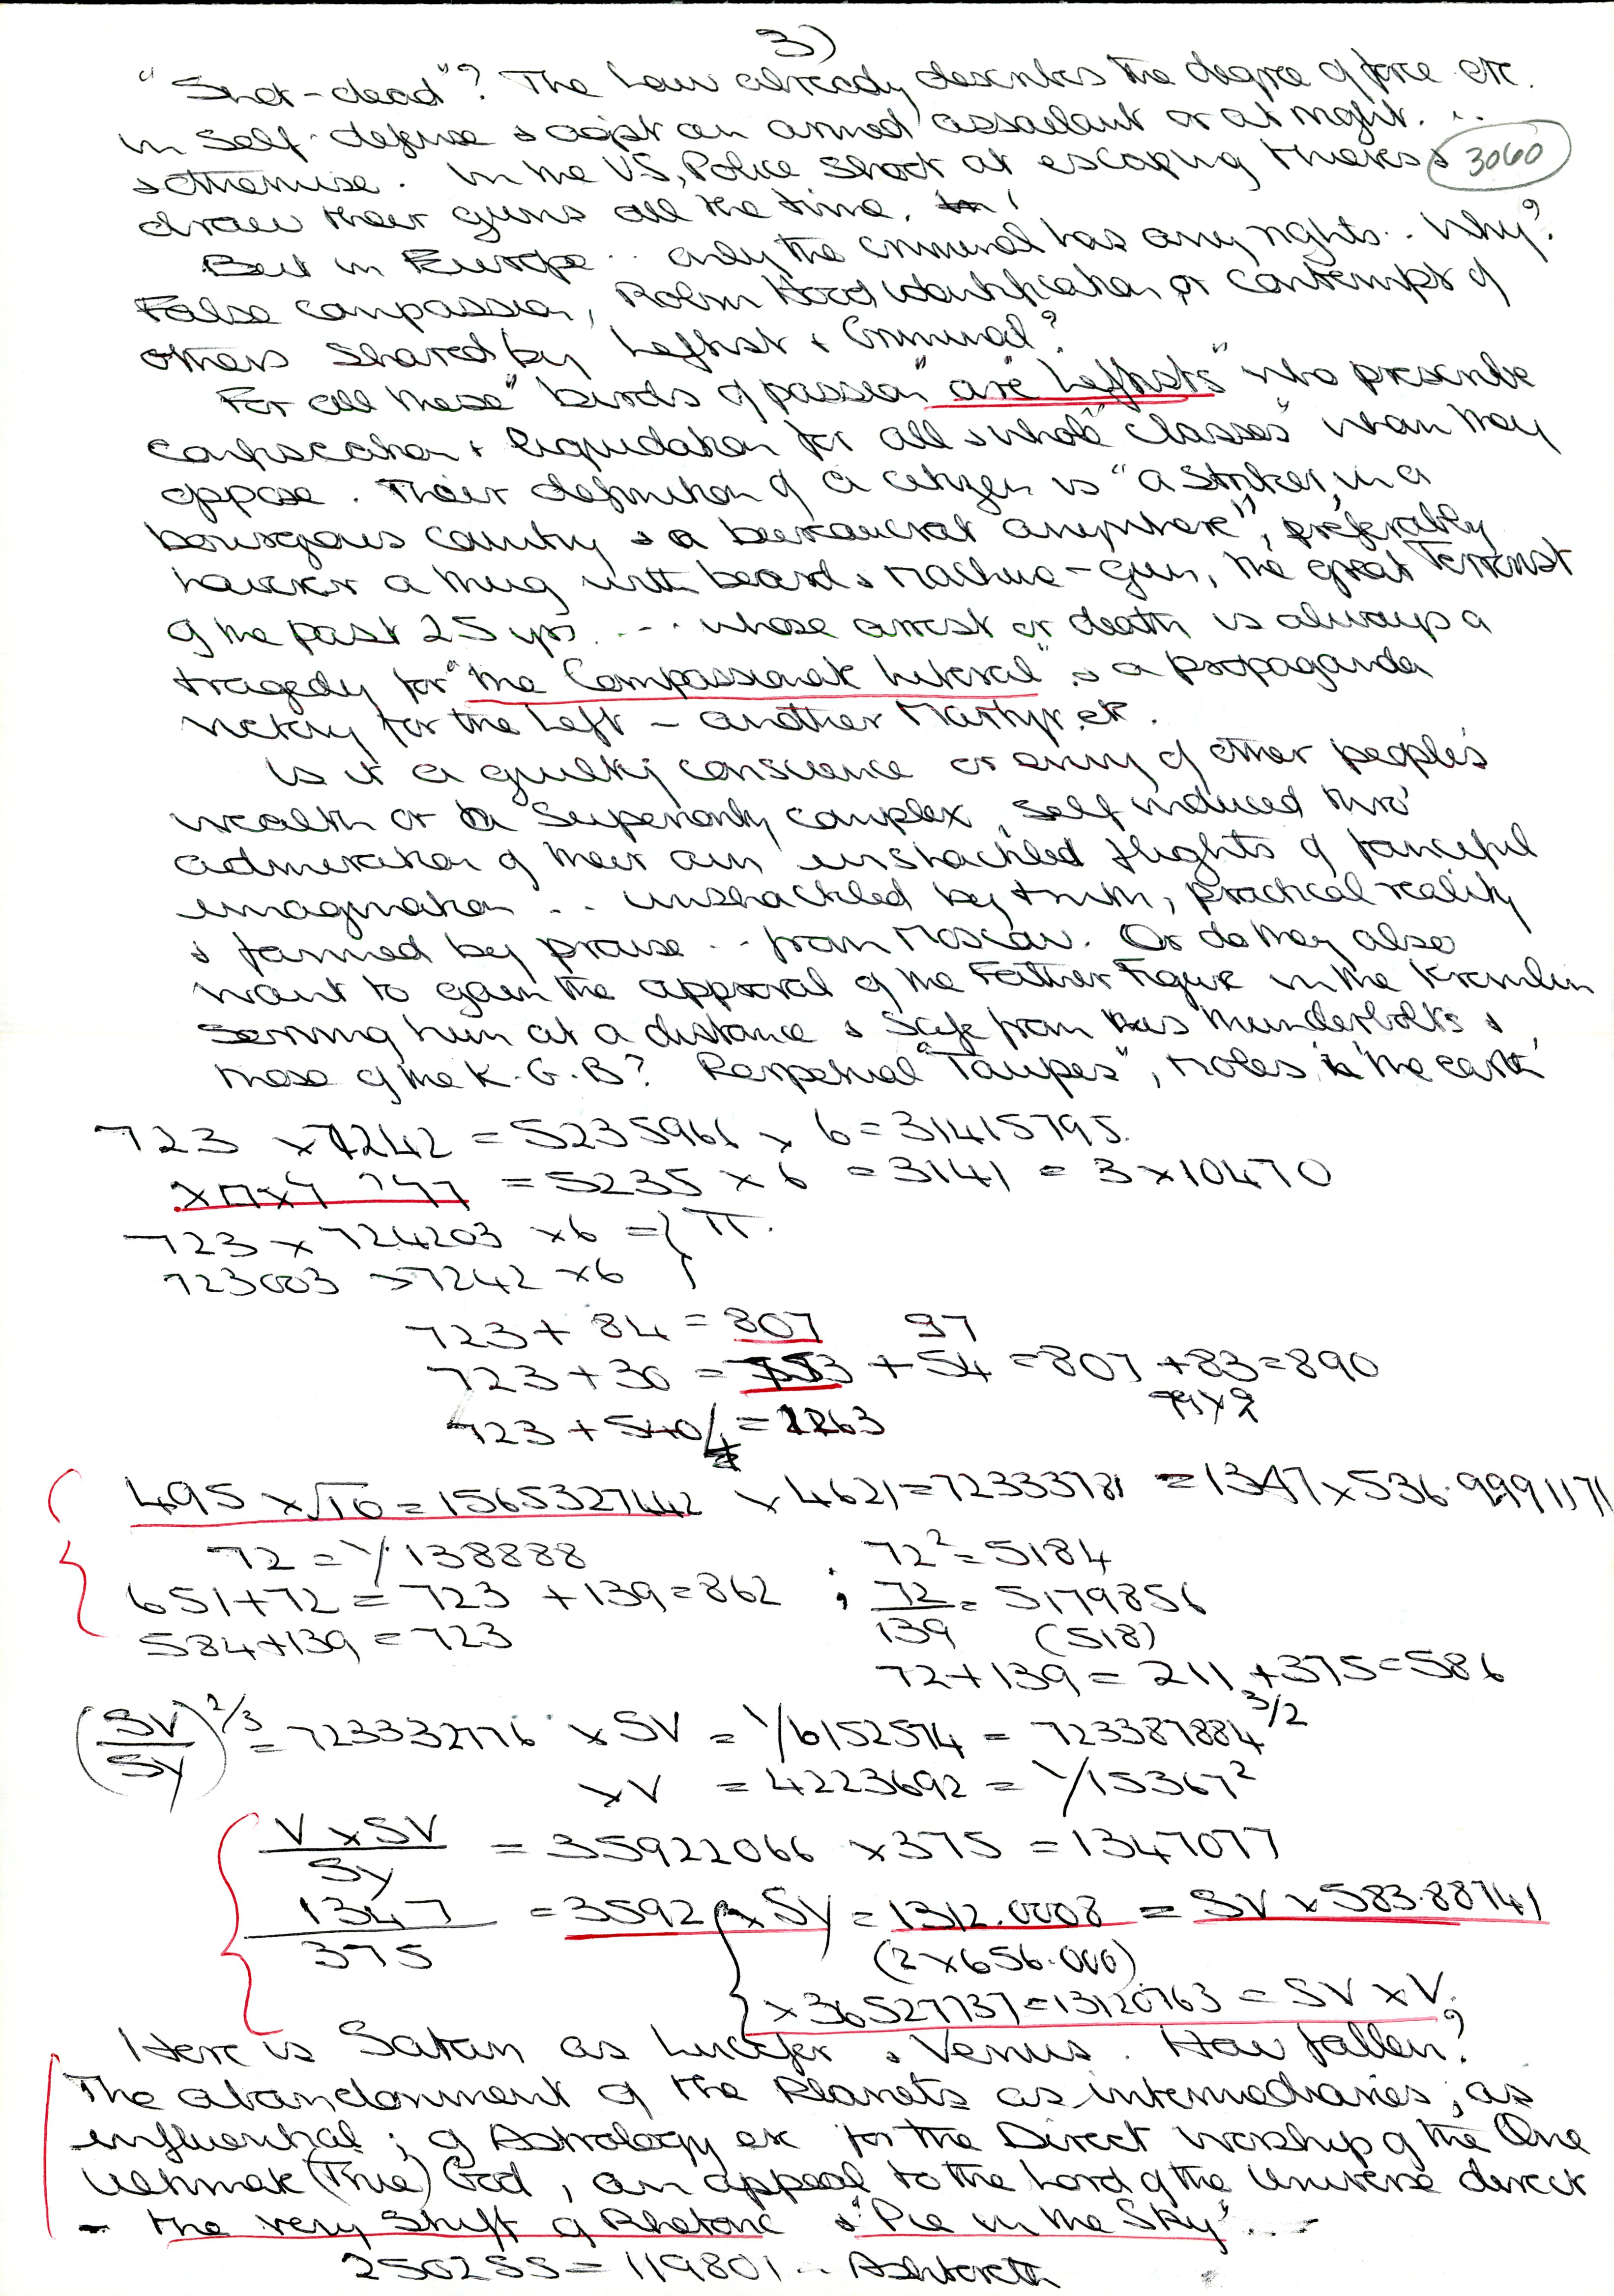 3)
"Shot-dead"? The Law already describes the degree of force etc.
in Self-defense & agst an armed assailant or at night. ..
& otherwise. In the US, Police shoot at escaping thieves &
3060
draw their guns all the time.
But in Europe .. only the criminal has any rights .. Why?
False compassion, Robin Hood identification or contempt of
others shared by Leftist & Criminal?
For all these "birds of passion" are Leftists" who prescribe
confiscation & liquidation for all & whole "classes" whom they
oppose. Their definition of a citizen is "a Striker, in a
bourgeous country & a bureaucrat anywhere", preferably
however a thug with beard & machine-gun, the great Terrorist
of the past 25 yrs. --- whose arrest or death is always a
tragedy for "the Compassionate Liberal" & a propaganda
victory for the Left - another Martyr, etc.
Is it a guilty conscience or envy of other people's
wealth or a Superiority complex, self induced thro'
admiration of their own unshackled flights of fanciful
imagination .. unshackled by truth, practical reality
& fanned by praise .. from Moscow. Or do they also
want to gain the approval of the Father Figure in the Kremlin
serving him at a distance & safe from his thunderbolts &
those of the K.G.B? Perpetual "Taupes", Moles in the earth
723 x 7242 = 5235966 x 6 = 31415795.
= 5235 x 6 = 3141 = 3 x 10470
723 x 724203 x 6 = } π.
723003 x 7242 x 6
723 + 84 = 807 97
723 + 30 = 753 + 54 = 807 + 83 = 890
723 + 540/ = 1263
495 x √10 = 1565327442 x 4621 = 72333781 = 1347 x 536.9991171
72 = 1/138888 ; 72² = 5184
651 + 72 = 723 + 139 = 862 ; 72/139 = 5179856
584 + 139 = 723 (518)
72 + 139 = 211 + 375 = 586
(SV/SY)^2/3 = 723332776 x SV = 1/6152574 = 723387884^3/2
x V = 4223692 = 1/15367²
V x SV / SY = 35922066 x 375 = 1347077
1347/375 = 3592 x SY = 1312.0008 = SV x 583.88741
(2 x 656.000)
x 36527737 = 13120763 = SV x V.
Here is Satan as Lucifer & Venus. How fallen?
The abandonment of the Planets as intermediaries, as
influential; of Astrology etc for the Direct worship of the One
Ultimate (True) God, an appeal to the Lord of the Universe direct
- the very Stuff of Rhetoric & "Pie in the Sky" ---
250255 = 119801 .. Ashtoreth